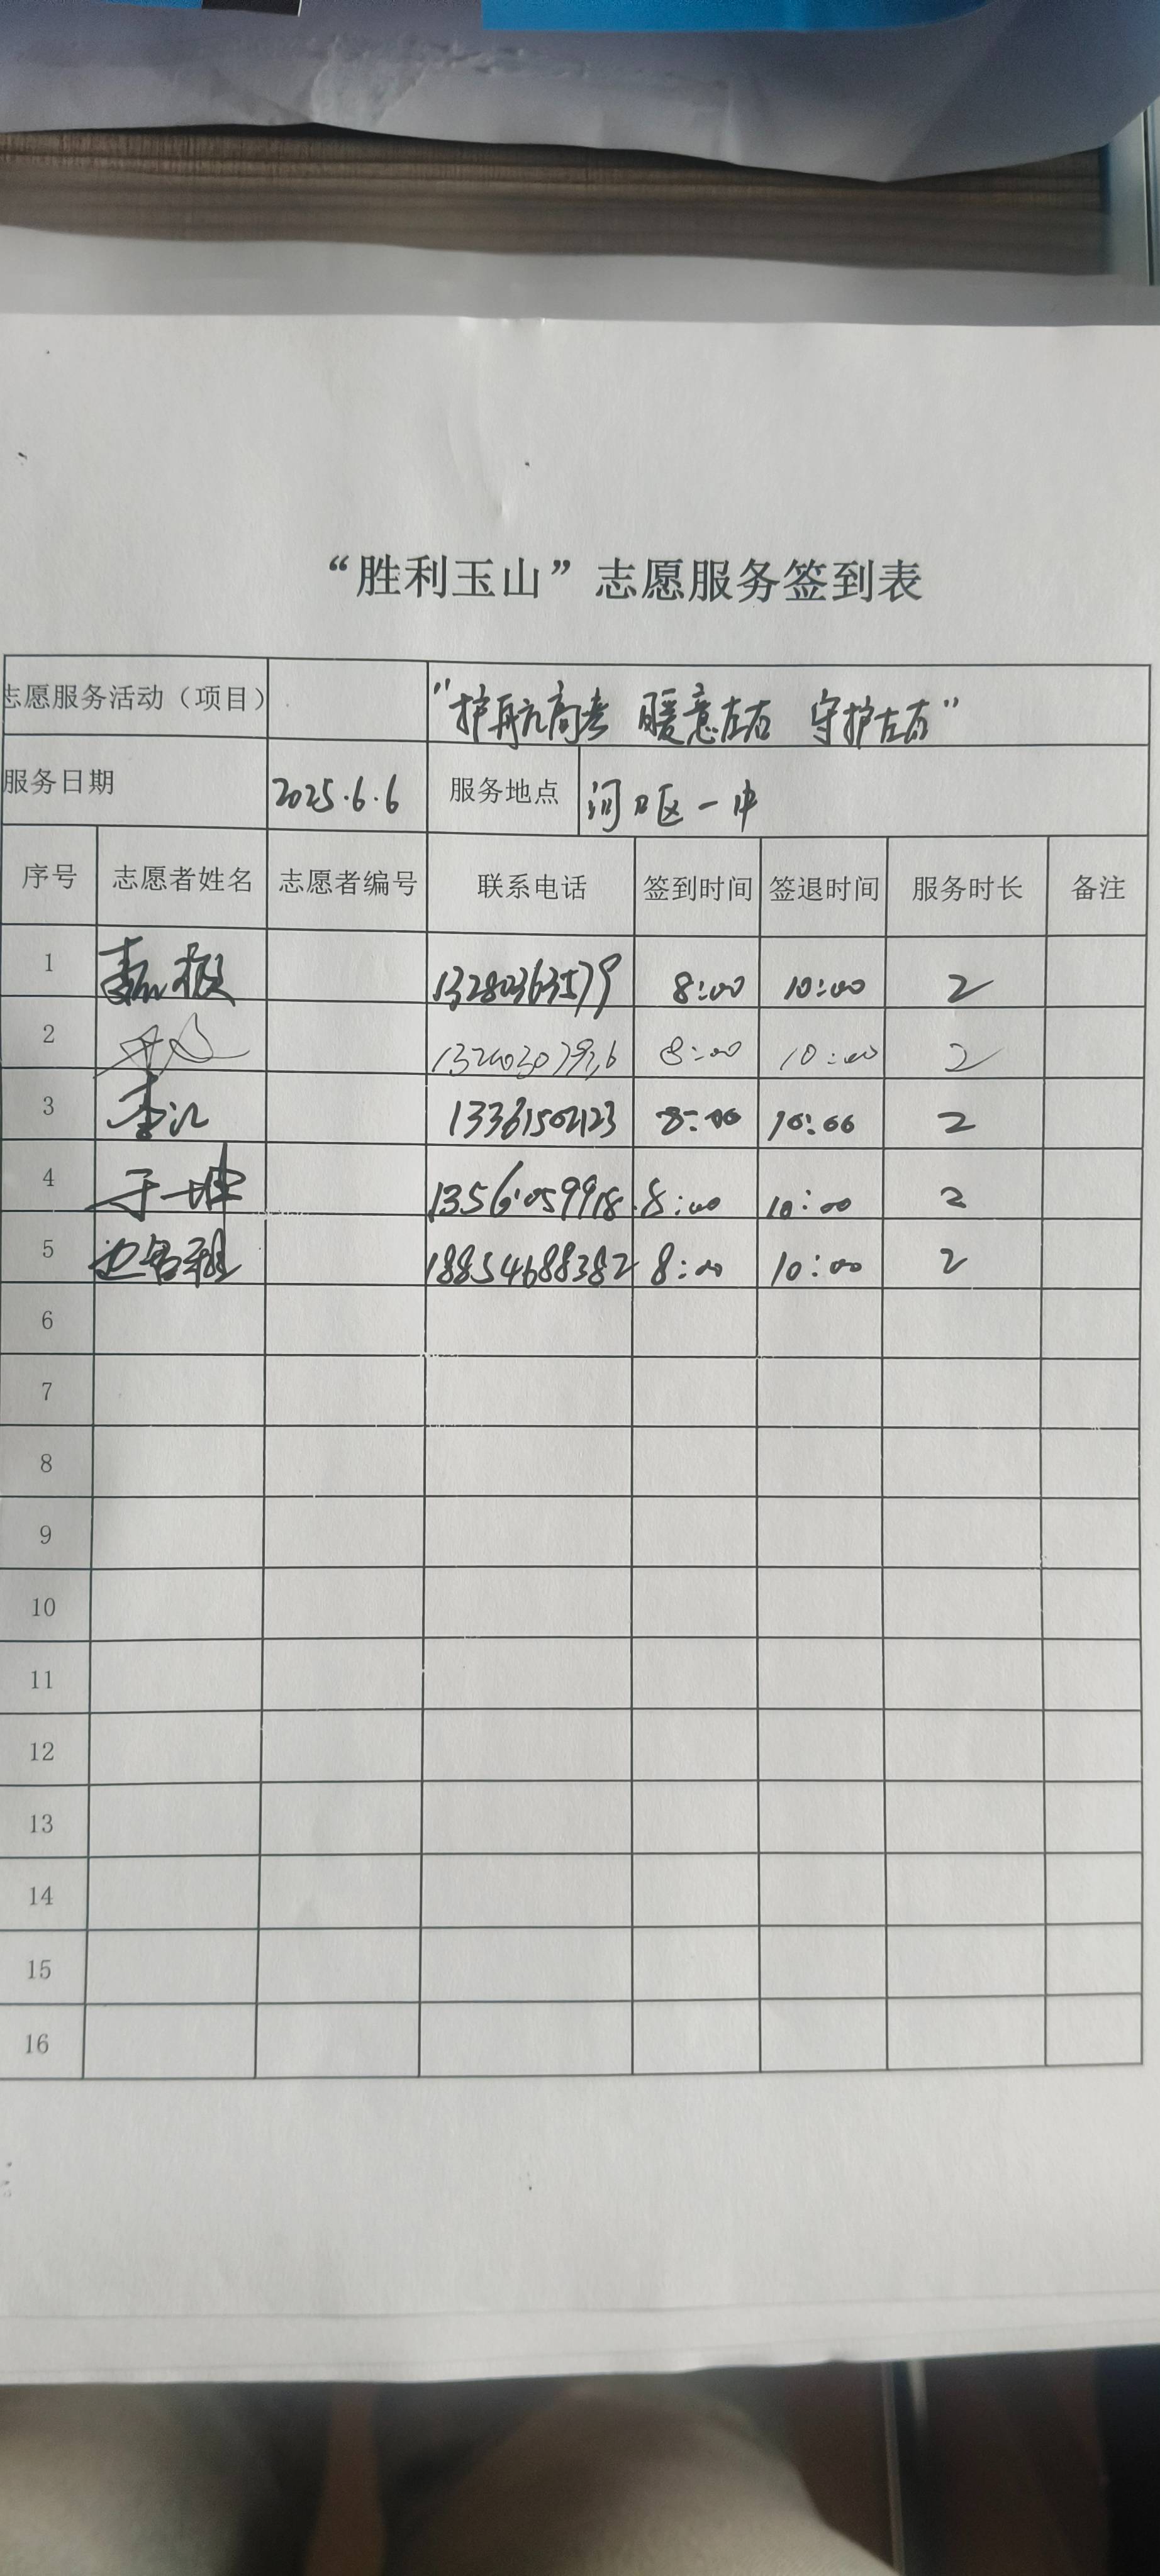 “胜利玉山”志愿服务签到表
志愿服务活动（项目） “护航高考 暖意左右 守护左右”
服务日期 2025.6.6 服务地点 河口区一中
序号 志愿者姓名 志愿者编号 联系电话 签到时间 签退时间 服务时长 备注
1 13280363579 8:00 10:00 2
2 8:00 10:00 2
3 李江 13361502123 8:00 10:00 2
4 于坤 13561059918 8:00 10:00 2
5 18854688382 8:00 10:00 2
6
7
8
9
10
11
12
13
14
15
16